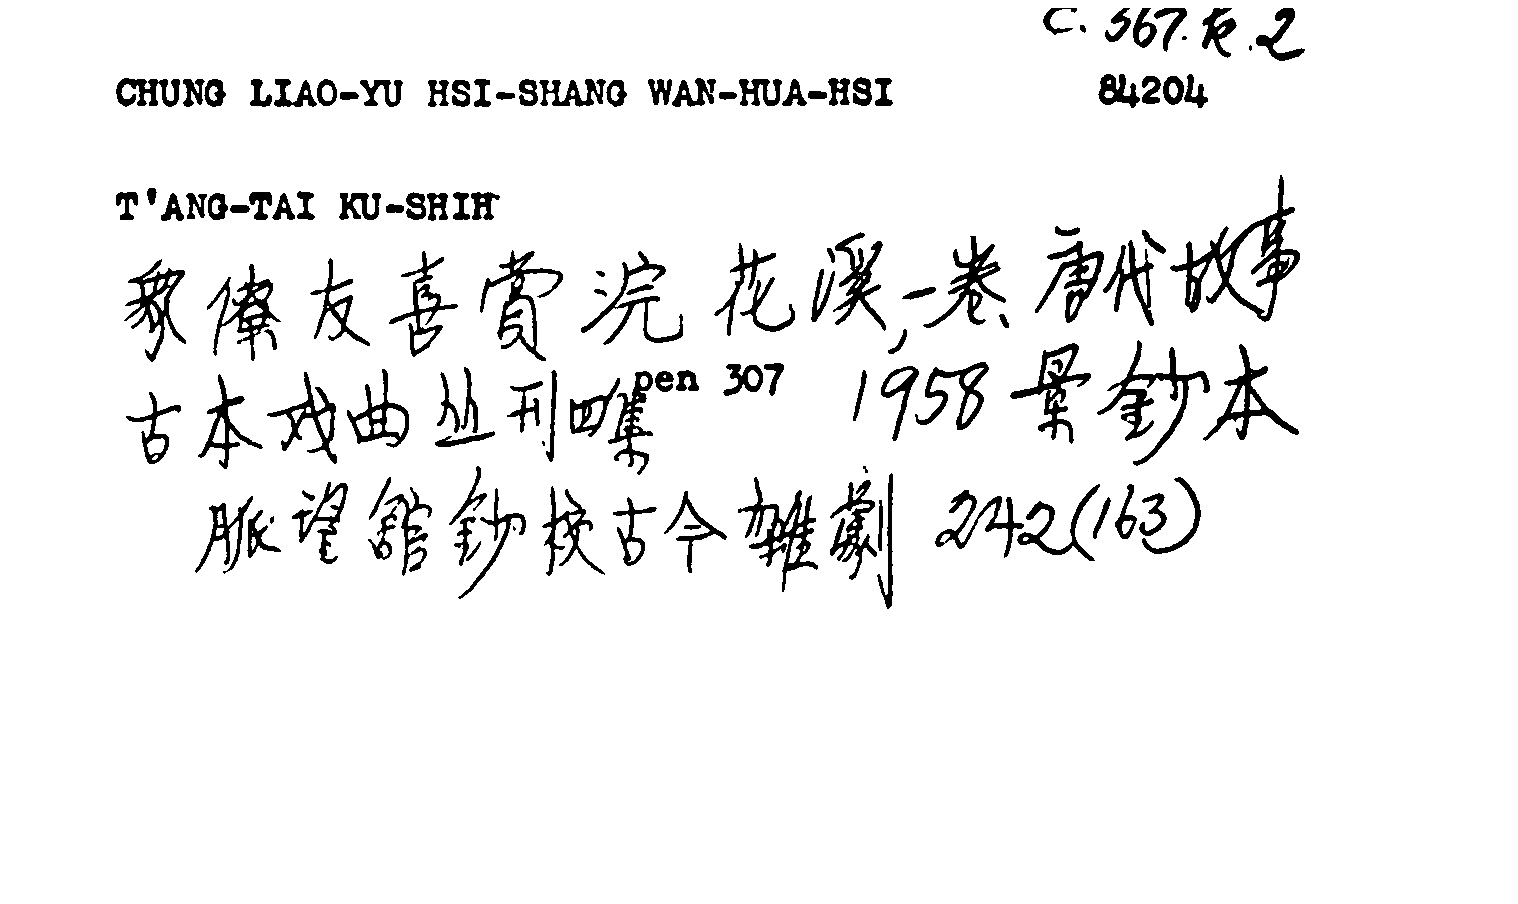 C. 367. k. 2
CHUNG LIAO-YU HSI-SHANG WAN-HUA-HSI 84204
T'ANG-TAI KU-SHIH
衆僚友喜賞浣花溪, 一卷、唐代故事
古本戏曲丛刊四集 pen 307 1958 景鈔本
脈望舘鈔校古今雜劇 242(163)